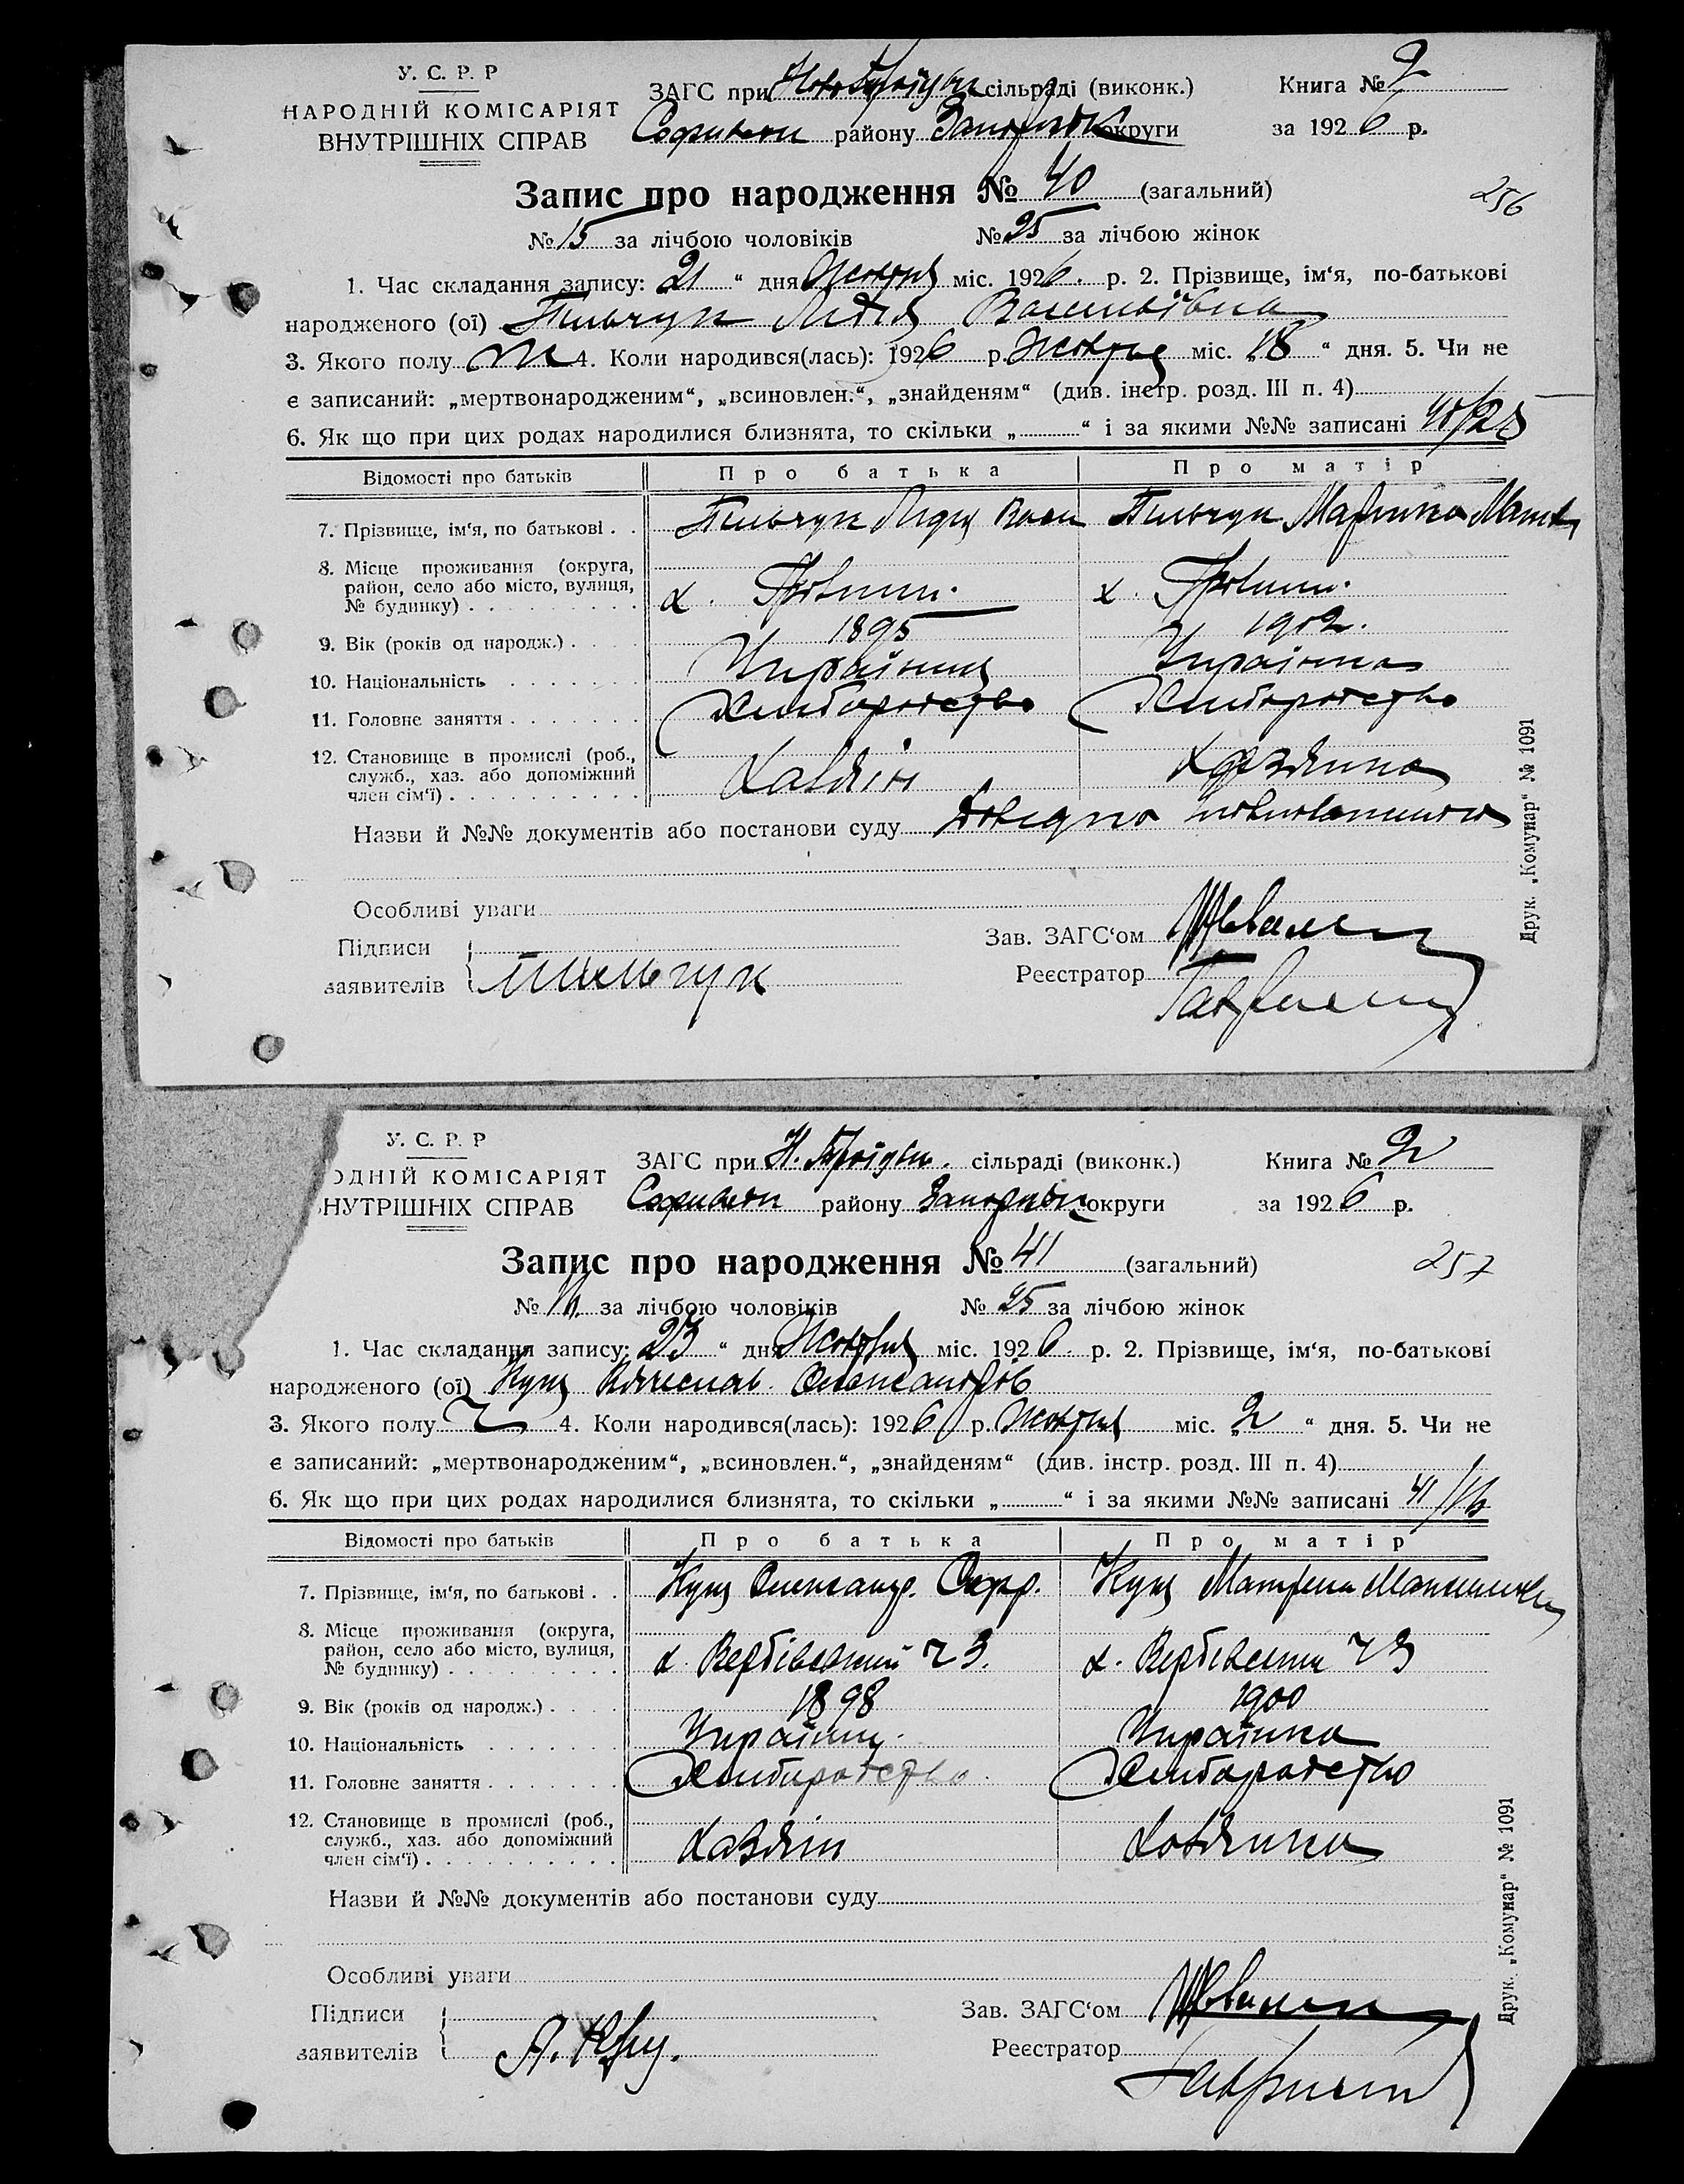 У. С. Р. Р
НАРОДНІЙ КОМІСАРІЯТ
ВНУТРІШНІХ СПРАВ
ЗАГС при сільраді (виконк.)
району округи
Книга № 2
за 1926 р.
Запис про народження № 40 (загальний)
256
№ 15 за лічбою чоловіків № 25 за лічбою жінок
1. Час складання запису: 21 “ дня Жовтня міс. 1926. р. 2. Прізвище, ім‘я, по-батькові
народженого (ої) Пильчук Лідія Васильівна
3. Якого полу ж 4. Коли народився(лась): 1926 р. Жовтня міс. „18 “ дня. 5. Чи не
є записаний: „мертвонародженим“, „всиновлен.“, „знайденям“ (див. інстр. розд. III п. 4)
6. Як що при цих родах народилися близнята, то скільки „ “ і за якими №№ записані 40/25
Відомості про батьків Про батька Про матір
7. Прізвище, ім‘я, по батькові . . Пильчук Пильчук
8. Місце проживання (округа,
район, село або місто, вулиця,
№ будинку) . . . . . . . . . х. х.
9. Вік (років од народж.) . . . . 1895 1902.
10. Національність . . . . . . . Українец Українка
11. Головне заняття . . . . . . . Хліборобство Хліборобство
12. Становище в промислі (роб.,
служб., хаз. або допоміжний
член сім‘ї) . . . . . . . . . . Хазяін Хазяика
Назви й №№ документів або постанови суду
Особливі уваги
Підписи
заявителів Пильчук
Зав. ЗАГС‘ом
Реєстратор
Друк. „Комунар“ № 1091
У. С. Р. Р
ОДНІЙ КОМІСАРІЯТ
ВНУТРІШНІХ СПРАВ
ЗАГС при сільраді (виконк.)
району округи
Книга № 2
за 1926 р.
Запис про народження № 41 (загальний)
257
№ за лічбою чоловіків № 25 за лічбою жінок
1. Час складання запису: 23 “ дня Жовтня міс. 1926. р. 2. Прізвище, ім‘я, по-батькові
народженого (ої) Куц Вячеслав. Олександрів
3. Якого полу ч 4. Коли народився(лась): 1926 р. Жовтня міс. „2 “ дня. 5. Чи не
є записаний: „мертвонародженим“, „всиновлен.“, „знайденям“ (див. інстр. розд. III п. 4)
6. Як що при цих родах народилися близнята, то скільки „ “ і за якими №№ записані 41/16
Відомості про батьків Про батька Про матір
7. Прізвище, ім‘я, по батькові . . Куц Олександр. Куц Матрена
8. Місце проживання (округа,
район, село або місто, вулиця,
№ будинку) . . . . . . . . . х. Вербівський ч 3. х. ч 3
9. Вік (років од народж.) . . . . 1898 1900
10. Національність . . . . . . . Українец. Українка
11. Головне заняття . . . . . . . Хліборобство Хліборобство
12. Становище в промислі (роб.,
служб., хаз. або допоміжний
член сім‘ї) . . . . . . . . . . Хазяін Хазяика
Назви й №№ документів або постанови суду
Особливі уваги
Підписи
заявителів
Зав. ЗАГС‘ом
Реєстратор
Друк. „Комунар“ № 1091